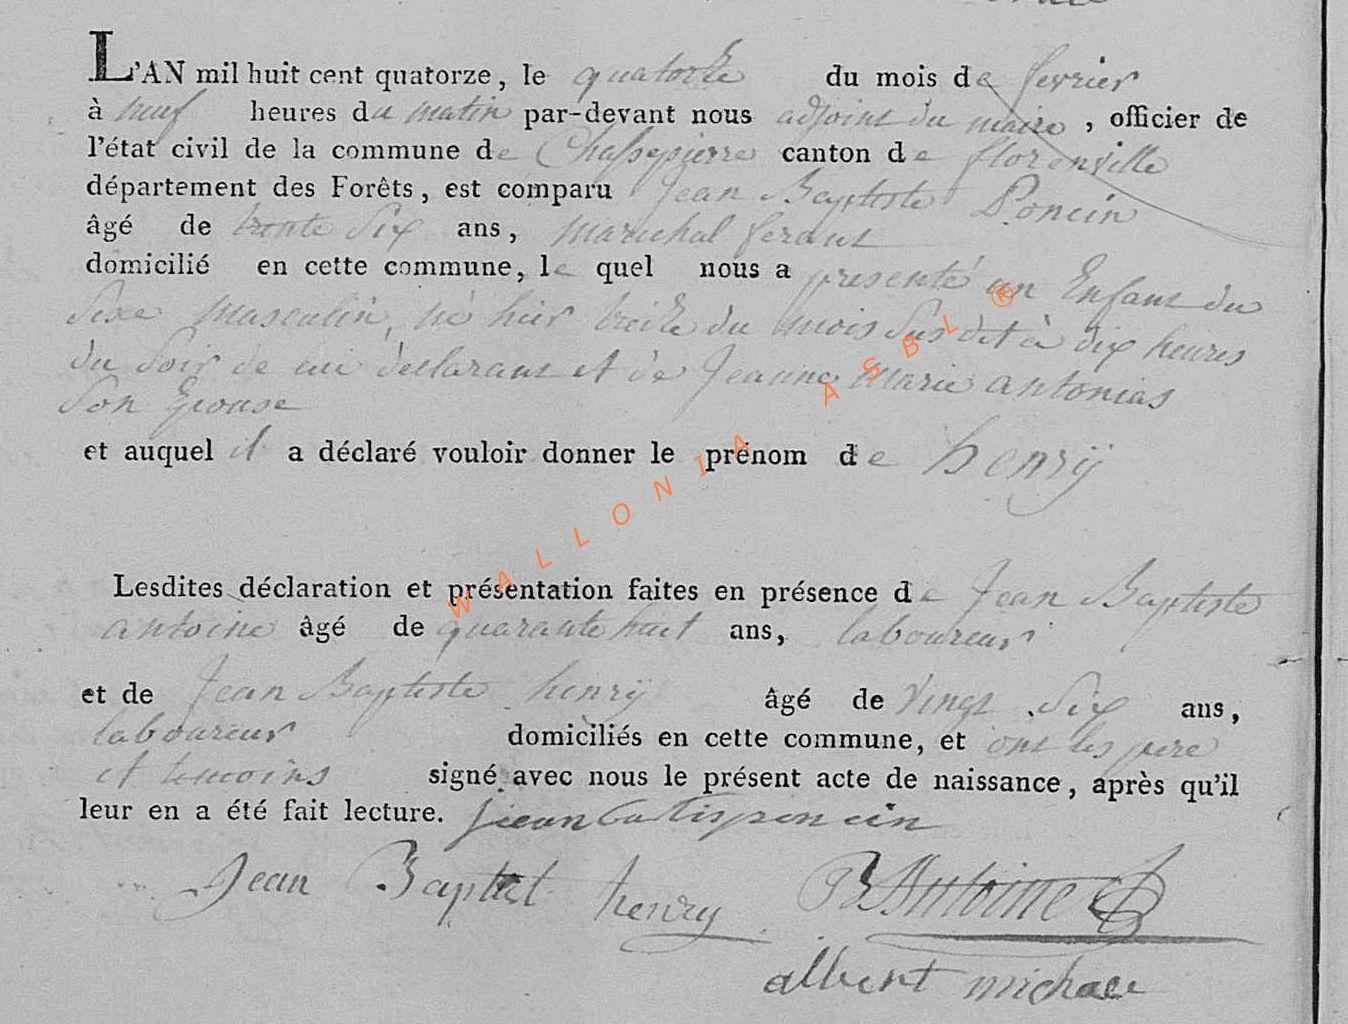 L'AN mil huit cent quatorze, le quatorze du mois de fevrier
à neuf heures du matin par-devant nous adjoint du maire, officier de
l'état civil de la commune de Chassepierre canton de florenville
département des Forêts, est comparu Jean Baptiste Poncin
âgé de trente Six ans, marechal ferant
domicilié en cette commune, le quel nous a presenté un Enfant du
Sexe Masculin, né hier treize du mois Sus dit à dix heures
du Soir de lui déclarant et de Jeanne Marie antonias
Son Epouse
et auquel il a déclaré vouloir donner le prénom de henrÿ
Lesdites déclaration et présentation faites en présence de Jean Baptiste
antoine âgé de quarante huit ans, laboureur
et de Jean Baptiste henrÿ âgé de Vingt Six ans,
laboureur domiciliés en cette commune, et ont les pere
et temoins signé avec nous le présent acte de naissance, après qu'il
leur en a été fait lecture. jean batis poncin
Jean Baptist henry B Antoine
albert michel
WALLONIA ASBL ®